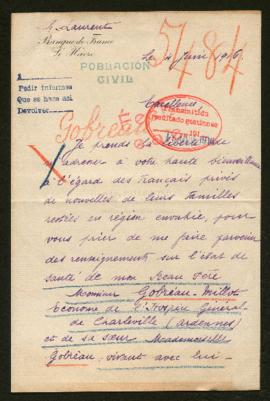 G. Laurent
Banque de France
Le Havre
Le 4 Juin 1916
5484
POBLACIÓN
CIVIL
A
Pedir informes
Que se haga así
Devolver
Excellence
Transmitida
resultado gestiones
Gobréau
Je prends la liberté de
adresser à votre haute bienveillance
à l'égard des français privés
de nouvelles de leurs familles
restées en région envahie, pour
vous prier de me faire parvenir
des renseignements sur l'état de
santé de mon Beau Père
Monsieur Gobréau-Millot
Econome de l'Hospice Général
de Charleville (Ardennes)
et de sa sœur Mademoiselle
Gobréau, vivant avec lui -